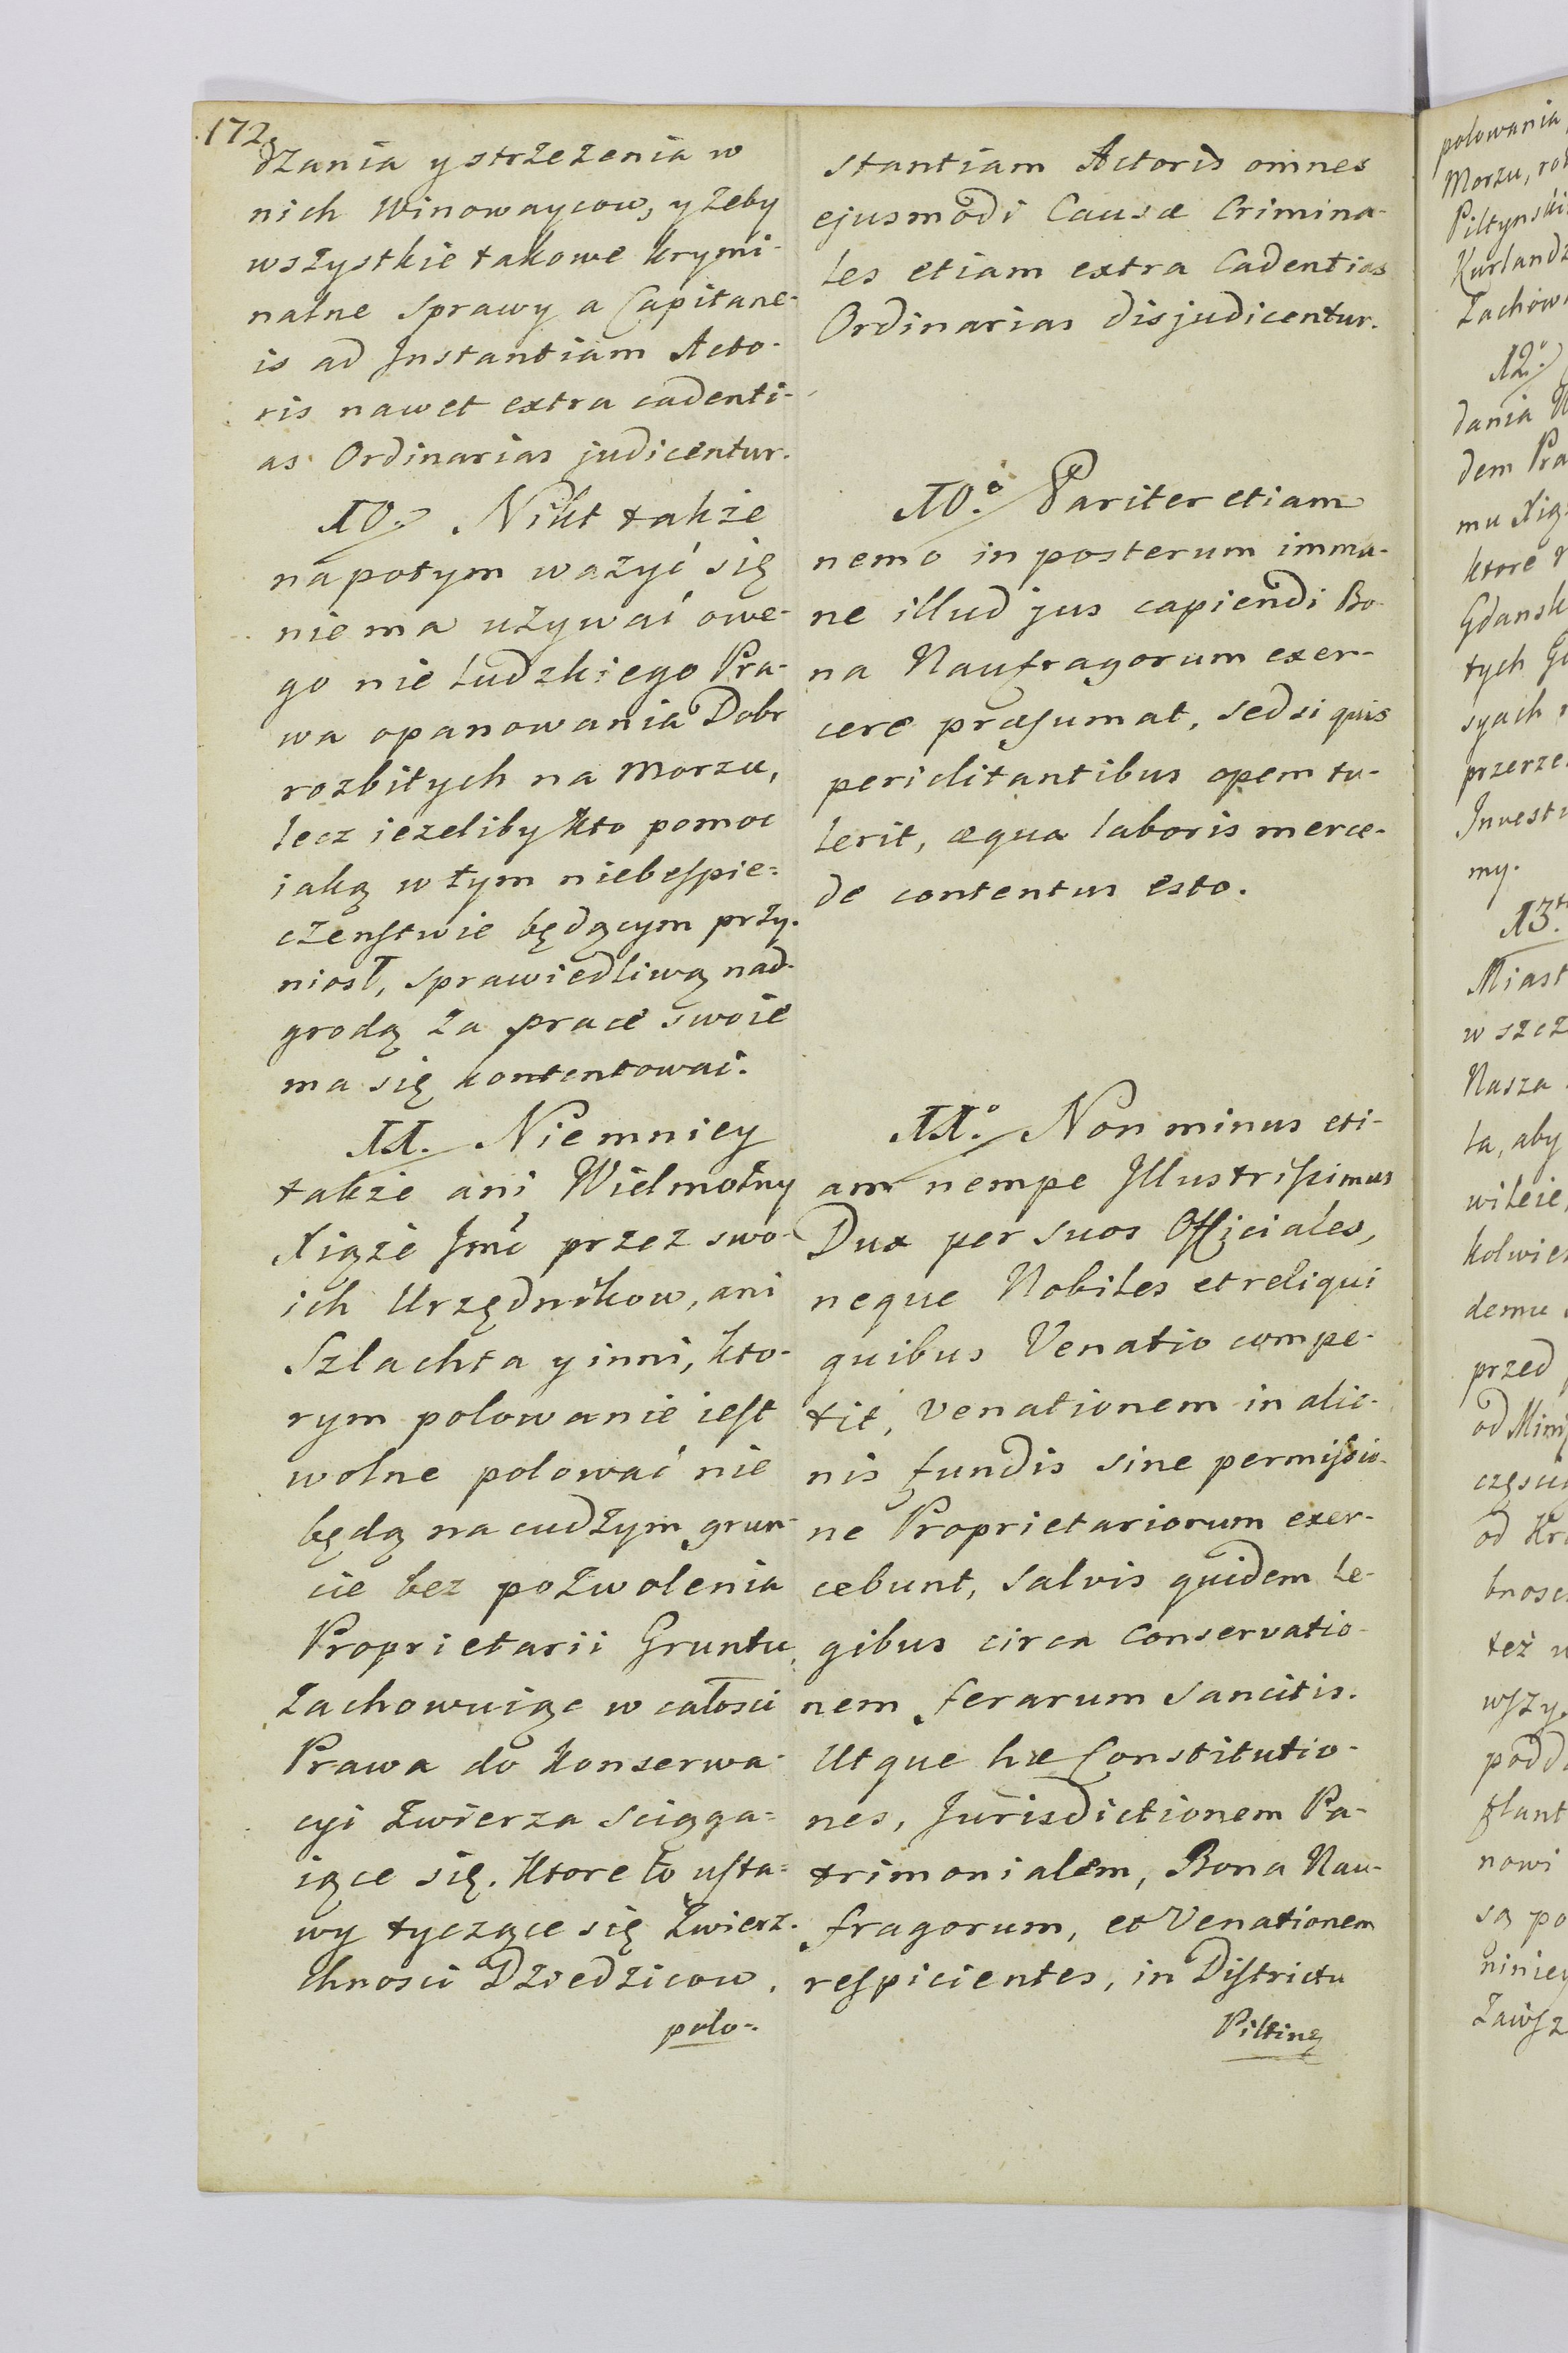 172
dzania y strzeżenia w
nich Winowaycow, y żeby
wszystkie takowe krymi-
nalne sprawy a Capitane-
is ad Instantiam Acto-
ris nawet extra cadenti-
as Ordinarias judicentur.
10. Nikt także
napotym ważyć się
niema używać owe-
go nie ludzkiego Pra-
wa opanowania Dobr
rozbitych na Morzu,
lecz ieżeliby kto pomoc
iaką w tym niebespie-
czenstwie będącym przy-
niosł, sprawiedliwą nad-
grodą za prace swoie
ma się kontentować.
11. Niemniey
także ani Wielmożny
Xiąże Jmć przez swo-
ich Urzędnikow, ani
Szlachta y inni, kto-
rym polowanie iest
wolne polować nie
będą na cudzym grun-
cie bez pozwolenia
Proprietarii Gruntu,
zachowuiąc w całości
Prawa do konserwa-
cyi zwierza sciąga-
iące się. Ktore to usta-
wy tyczące się Zwierz-
chnosci Dziedzicow,
polo-
stantiam Actoris omnes
ejusmodi Causæ Crimina-
les etiam extra Cadentias
Ordinarias disjudicentur.
10.o Pariter etiam
nemo in posterum imma-
ne illud jus capiendi Bo-
na Naufragorum exer-
cere præsumat, sed si quis
periclitantibus opem tu-
lerit, æqua laboris merce-
de contentus esto.
11.o Non minus eti-
am nempe Illustrissimus
Dux per suos Officiales,
neque Nobiles et reliqui
quibus Venatio compe-
tit, venationem in alie-
nis fundis sine permissio-
ne Proprietariorum exer-
cebunt, salvis quidem le-
gibus circa conservatio-
nem ferarum sancitis.
Utque hæ Constitutio-
nes, Jurisdictionem Pa-
trimonialem, Bona Nau-
fragorum, et Venationem
respicientes, in Districtu
Piltinę
polowania
Morzu,
Piltynski
Kurlandz
Zachow
12.o
dania
dem Pra
mu Xią
ktore
Gdansk
tych
syach
przerze
Investi
my.
13.
Miast
w szcz
Nasza
la, aby
wileie,
kolwie
demu
przed
od
częsci
od
bnosc
też
wszy
podd
flant
nowi
są po
niniey
Zawsz